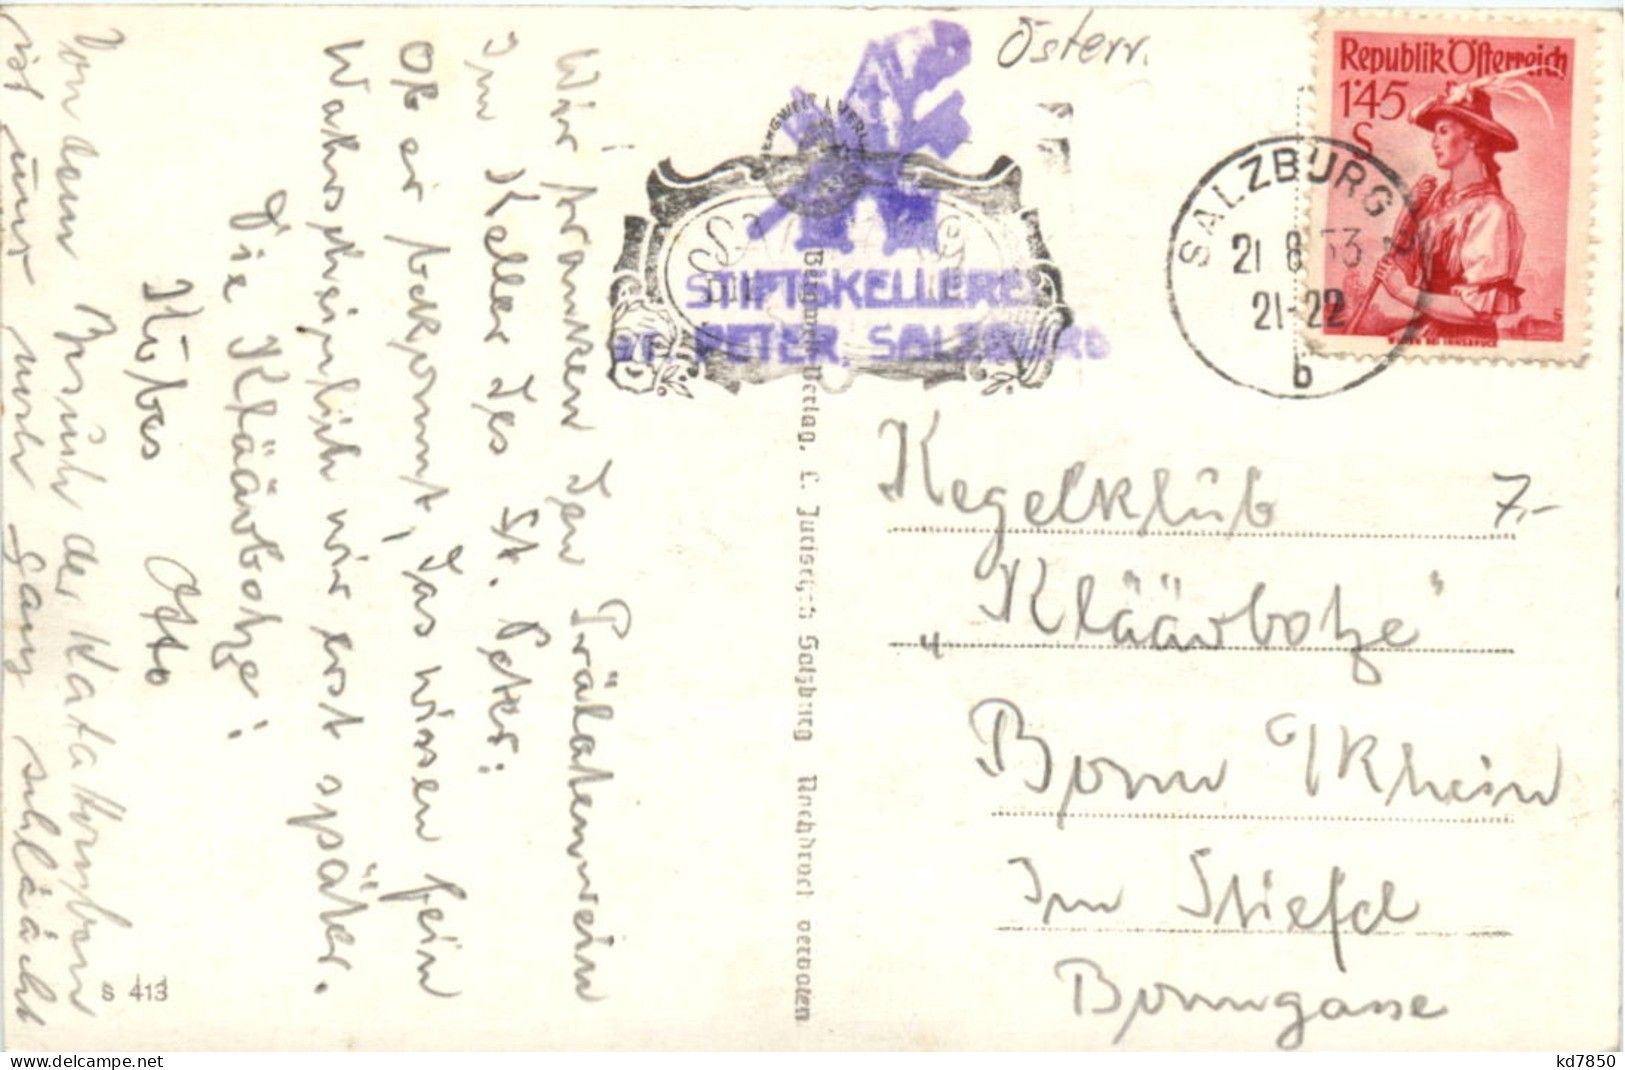 Österr.
Republik Österreich
1'45
S
WILTEN BEI INNSBRUCK
SALZBURG 2
21 8 53
21-22
b
STIFTSKELLEREI
ST. PETER, SALZBURG
Wir tranken den Prälatenwein
Im Keller des St. Peter:
Ob er bekommt, das wissen fein
Wahrscheinlich wir erst später.
Die Kläävbotze!
Kubas Otto
Von dem Besuch der Katakomben
ist uns mehr ganz schläächt
Verlag, C. Jurischek Salzburg Nachdruck verboten
S 413
Kegelklub
"Kläävbotze"
Bonn a/Rhein
Im Stiefel
Bonngasse
7,-
kd7850